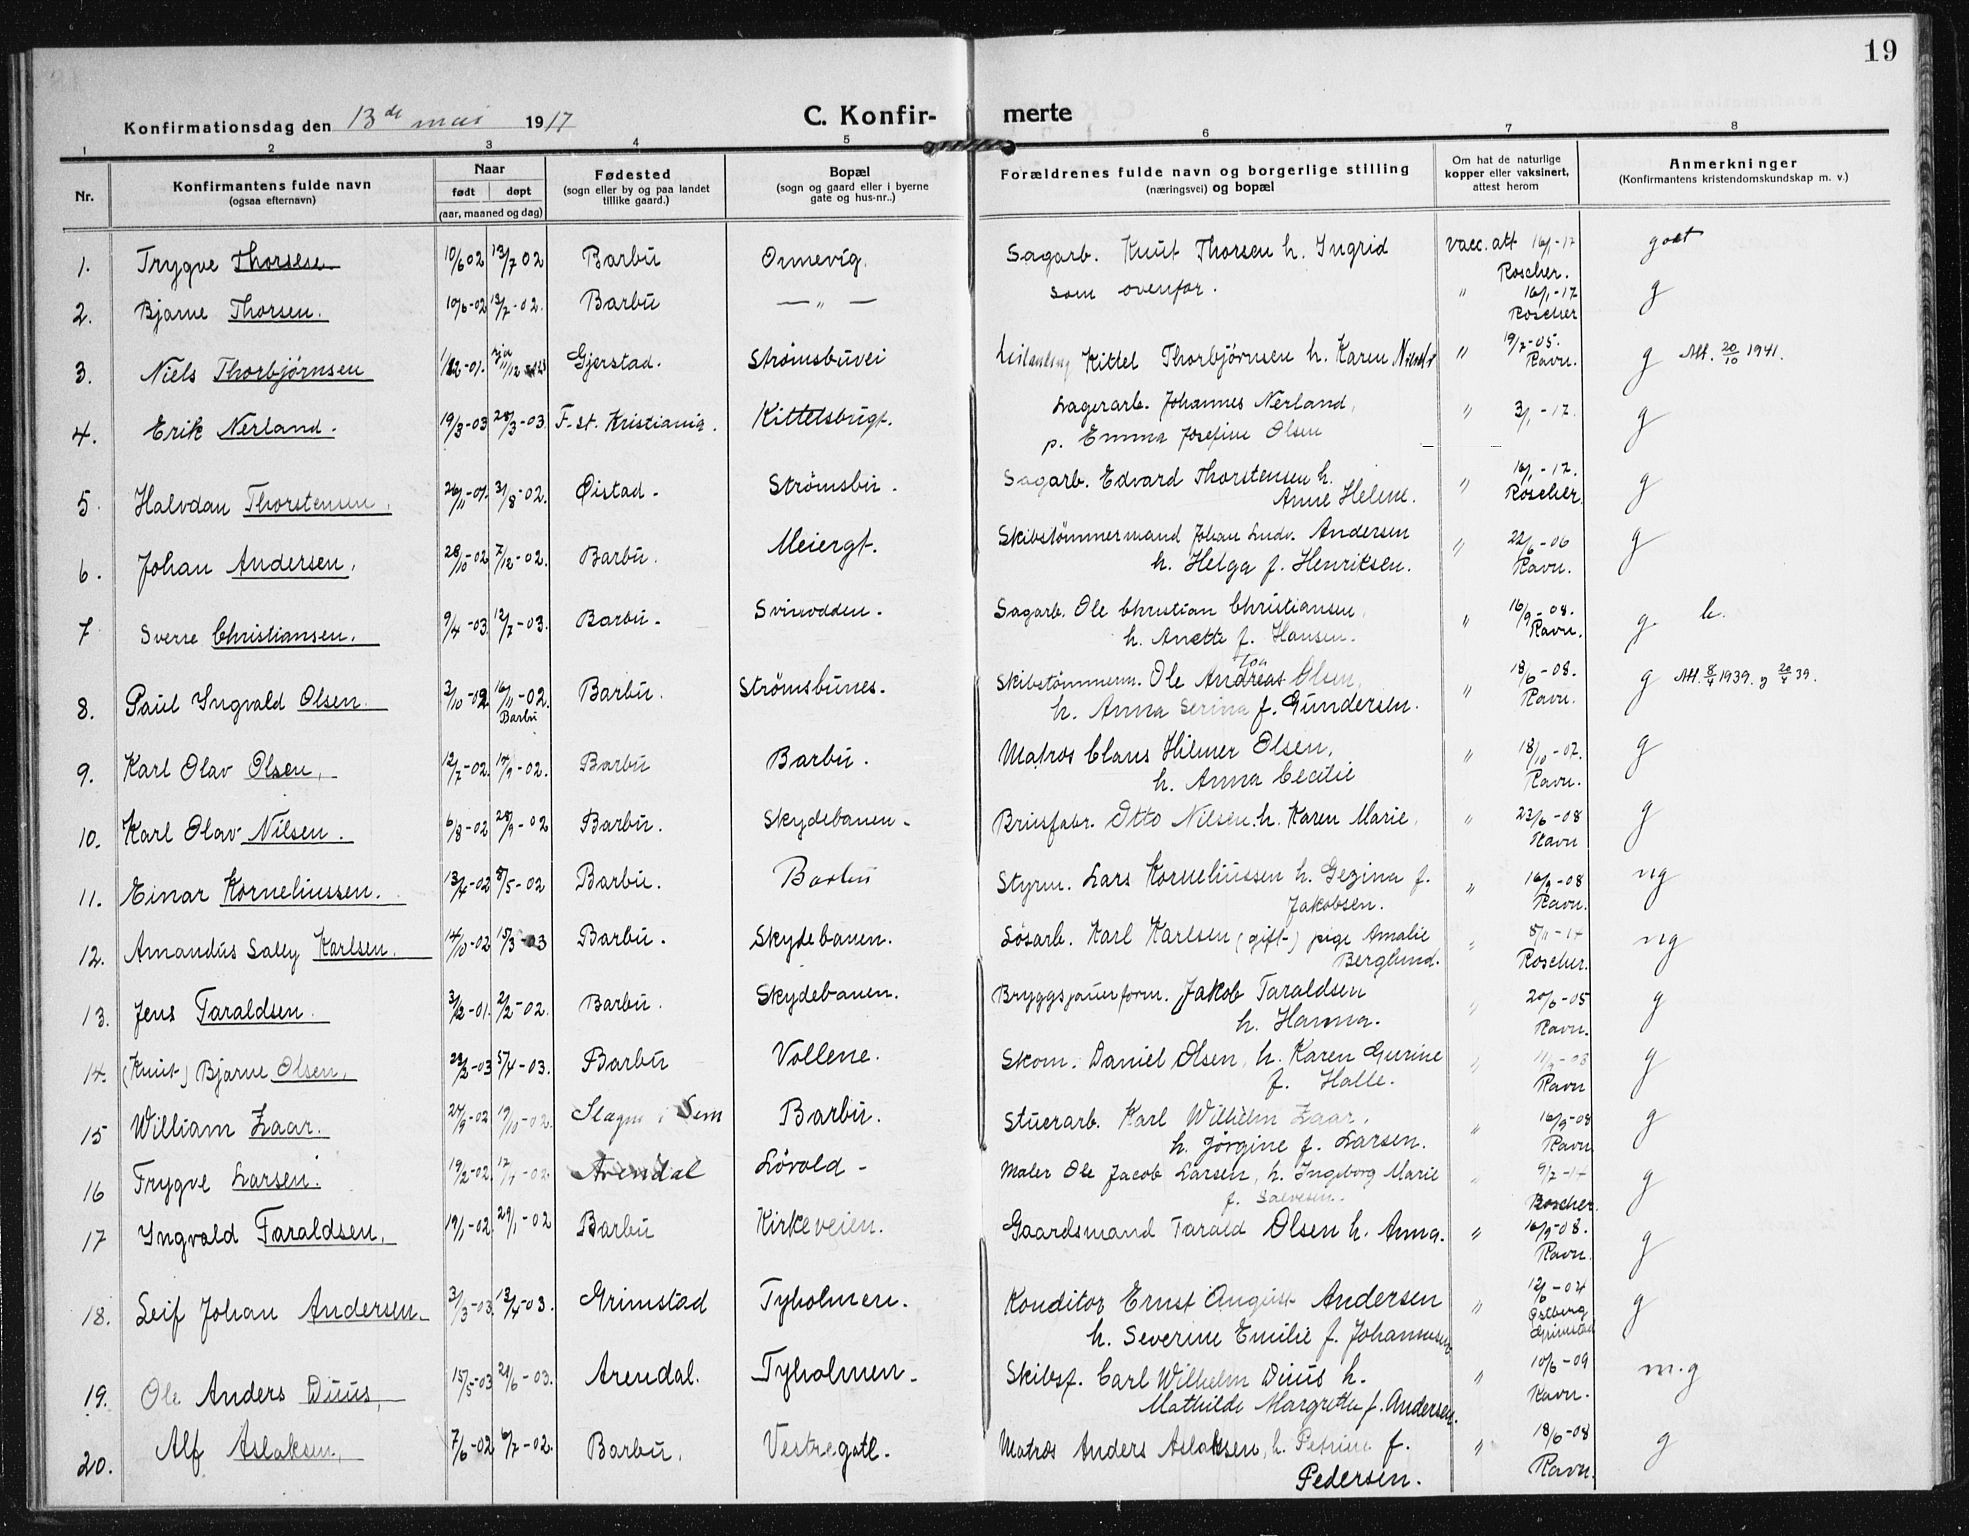 19
Konfirmationsdag den 13de mai 1917
C. Konfirmerte
1 2 3 4 5 6 7 8
Nr.
Konfirmantens fulde navn
(ogsaa efternavn)
Naar
født døpt
(aar, maaned og dag)
Fødested
(sogn eller by og paa landet
tillike gaard.)
Bopæl
(sogn og gaard eller i byerne
gate og hus-nr..)
Forældrenes fulde navn og borgerlige stilling
(næringsvei) og bopæl
Om hat de naturlige
kopper eller vaksinert,
attest herom
Anmerkninger
(Konfirmantens kristendomskundskap m. v.)
1. Trygve Thorsen 10/6 02 13/7 02 Barbu Omnevig. Sagarb. Knut Thorsen h. Ingrid vacc. att 16/1-17 Roscher. godt
2. Bjarne Thorsen. 10/6-02 13/7-02. Barbu — " — som ovenfor. " 16/1-17 Roscher g
3. Niels Thorbjørnsen 1/12-01. Gjerstad. Strømsbuvei Kittel Thorbjørnsen h. Karen " 19/7-05. Ravn. g Att. 20/10 1941.
4. Erik Nerland. 19/3-03 28/3-03. F. st. Kristiania. Kittelsbugt. Lagerarb. Johannes Nerland, " 3/1-17. g
p. Emma Josefine Olsen
5. Halvdan Thorstensen. 26/11-01. 3/8-02. Øistad. Strømsbu. Sagarb. Edvard Thorstensen h. " 16/1-17. Roscher. g
Anne Helene.
6. Johan Andersen. 28/10-02 7/12-02. Barbu. Meiergt. Skibstømmermand Johan Ludv. Andersen " 22/6-06 Ravn. g
h. Helga f. Henriksen.
7 Sverre Christiansen. 9/4-03. 12/7-03. Barbu. Svinodden. Sagarb. Ole Christian Christiansen, " 16/9-08. Ravn. g.
h. Anette f. Hansen.
8. Paul Ingvald Olsen. 3/10-02. 16/11-02. Barbu Barbu. Strømsbunes. Skibstømmerm. Ole Andreas Olsen, " 18/6-08. Ravn. g Att. 8/4 1939. 20/4 39.
h. Anna Serina f. Gundersen.
9. Karl Olav Olsen, 12/7-02. 14/9-02. Barbu Barbu. Matros Claus Hilmer Olsen, " 18/10-07. Ravn. g
h. Anna Cecilie
10. Karl Olav Nilsen. 6/8-02 28/9-02 Barbu. Skydebanen. Brusfabr. Otto Nilsen. h. Karen Marie. " 23/6-08 Ravn g
11. Einar Korneliussen. 13/4-02 8/5-02 Barbu. Barbu Styrm. Lars Korneliussen h. Gezina f. " 16/9-08 Ravn. mg
Jakobsen.
12. Amandus Sally Karlsen. 14/10-02 15/3-03 Barbu. Skydebanen. Løsarb. Karl Karlsen (gift) pige Amalie " 8/11-14 Roscher. mg
Berglund.
13. Jens Taraldsen. 3/12-01. 2/2-02. Barbu. Skydebanen. Bryggsjauerform. Jakob Taraldsen " 20/6-05 Ravn. g
h. Hanna.
14. (Knut) Bjarne Olsen, 22/2-03 5/4-03. Barbu Vollene. Skom. Daniel Olsen, h. Karen Gurine " 11/9-08 Ravn g
f. Halle.
15 William Zaar. 24/9-02 19/10-02. Slagn i Sem Barbu. Stuerarb. Karl Wilhelm Zaar, " 16/9-08 Ravn g
h. Jørgine f. Larsen.
16 Trygve Larsen. 19/2-02. Arendal Løvold Maler Ole Jacob Larsen, h. Ingeborg Marie " 9/7-14 Roscher. g
f. Salvesen.
17 Ingvald Taraldsen. 19/1-02. 29/1-02 Barbu Kirkeveien. Gaardsmand Tarald Olsen h. Anna. " 16/9-08. Ravn. g
18. Leif Johan Andersen 3/3-03. 13/4-03. Grimstad Tyholmen. Konditor Ernst August Andersen " 12/6-04 Østberg Grimstad g
h. Severine Emilie f. Johannesen
19. Ole Anders Duus, 15/5-03 21/6-03. Arendal. Tyholmen. Skibsf. Carl Wilhelm Duus h. " 10/6-09 Ravn. m.g
Mathilde Margrethe f. Andersen.
20. Alf Aslaksen, 7/6-02 6/7-02. Barbu. Vestregate. Matros Anders Aslaksen, h. Petrine f. " 18/6-08 Ravn. g
Pedersen.